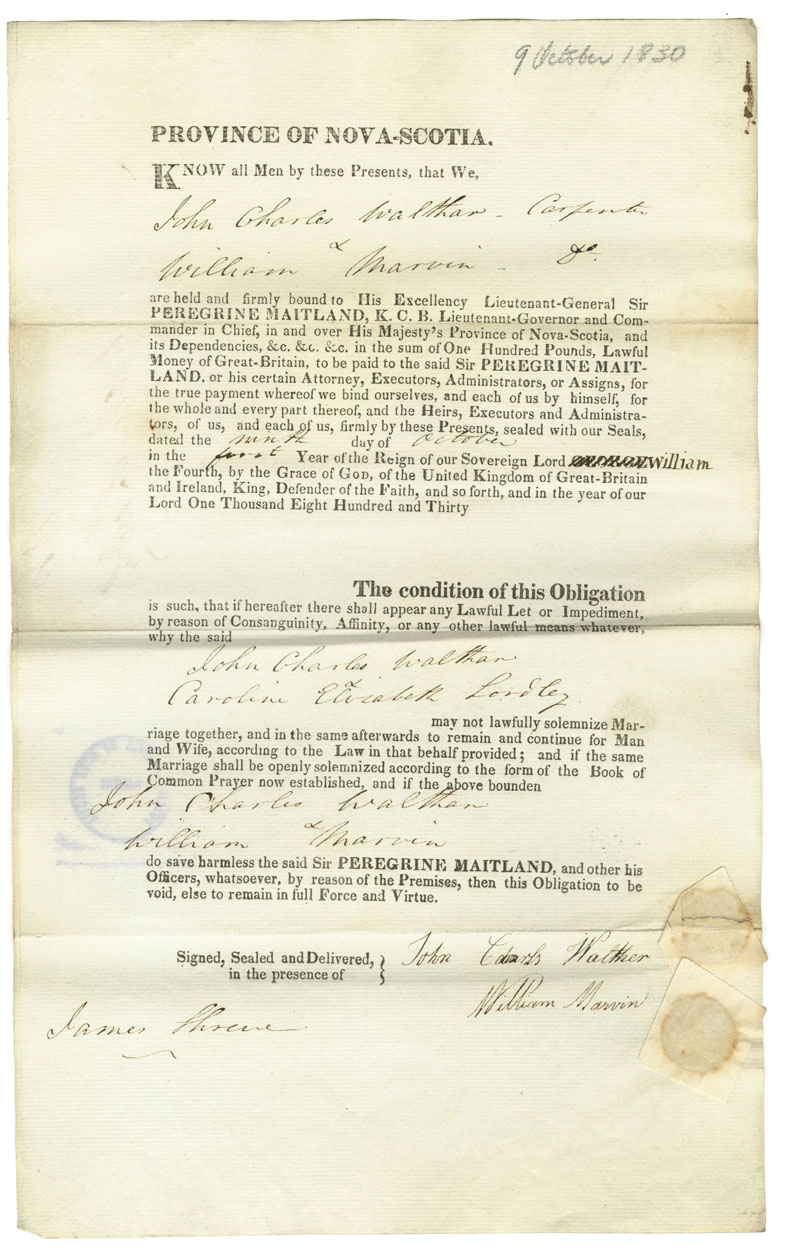 9 October 1830
PROVINCE OF NOVA-SCOTIA.
KNOW all Men by these Presents, that We,
John Charles Walthar - Carpenter
&
William Marvin - Do.
are held and firmly bound to His Excellency Lieutenant-General Sir
PEREGRINE MAITLAND, K. C. B. Lieutenant-Governor and Com-
mander in Chief, in and over His Majesty's Province of Nova-Scotia, and
its Dependencies, &c. &c. &c. in the sum of One Hundred Pounds, Lawful
Money of Great-Britain, to be paid to the said Sir PEREGRINE MAIT-
LAND, or his certain Attorney, Executors, Administrators, or Assigns, for
the true payment whereof we bind ourselves, and each of us by himself, for
the whole and every part thereof, and the Heirs, Executors and Administra-
tors, of us, and each of us, firmly by these Presents, sealed with our Seals,
dated the ninth day of October
in the first Year of the Reign of our Sovereign Lord William
the Fourth, by the Grace of GOD, of the United Kingdom of Great-Britain
and Ireland, King, Defender of the Faith, and so forth, and in the year of our
Lord One Thousand Eight Hundred and Thirty
The condition of this Obligation
is such, that if hereafter there shall appear any Lawful Let or Impediment,
by reason of Consanguinity, Affinity, or any other lawful means whatever,
why the said
John Charles Walthar
&
Caroline Elizabeth Lordley
may not lawfully solemnize Mar-
riage together, and in the same afterwards to remain and continue for Man
and Wife, according to the Law in that behalf provided; and if the same
Marriage shall be openly solemnized according to the form of the Book of
Common Prayer now established, and if the above bounden
John Charles Walthar
&
William Marvin
do save harmless the said Sir PEREGRINE MAITLAND, and other his
Officers, whatsoever, by reason of the Premises, then this Obligation to be
void, else to remain in full Force and Virtue.
Signed, Sealed and Delivered, } John Charls Walther
in the presence of
William Marvin
James Shreve